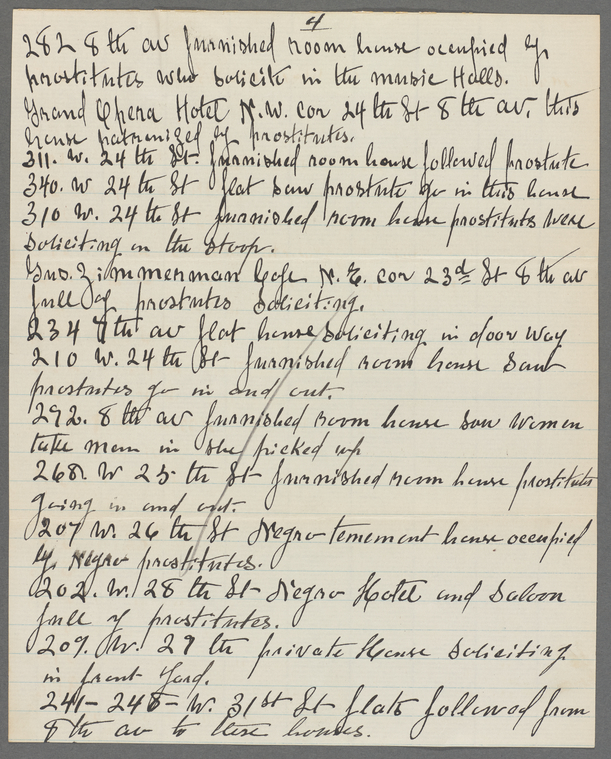 4
282 8th av furnished room house occupied by
prostitutes who solicite in the music Halls.
Grand Opera Hotel N.W. cor 24th St 8th av. this
house patronized by prostitutes.
311. W. 24th St. furnished room house followed prostute
340. W 24th St flat saw prostute go in this house
310 W. 24th St furnished room house prostituts were
soliciting on the stoop.
Gus. Zimmerman Cafe N.E. cor 23d St 8th av
full of prostutes soliciting.
234 8th av flat house soliciting in door way
210 W. 24th St furnished room house saw
prostutes go in and out.
292. 8th av furnished room house saw women
take men in she picked up
268. W 25th St furnished room house prostituts
going in and out.
207 W. 26th St Negro tenement house occupied
by Negro prostitutes.
202. W. 28th St Negro Hotel and Saloon
full of prostitutes.
209. W. 27th private House soliciting
in front yard.
241-245- W. 31st St flats followed from
8th av to these houses.